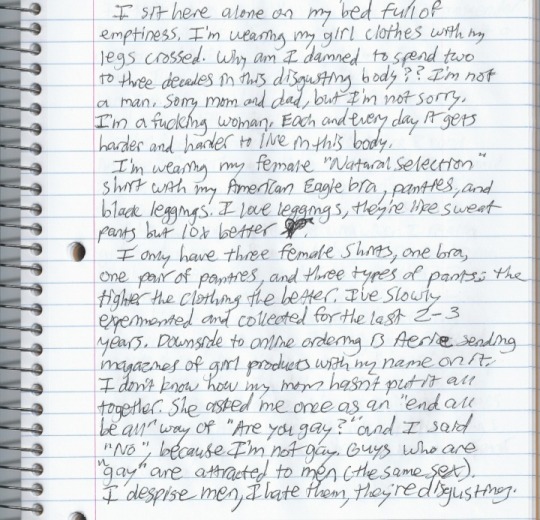 I sit here alone on my bed full of
emptiness. I'm wearing my girl clothes with my
legs crossed. Why am I damned to spend two
to three decades in this disgusting body?? I'm not
a man. Sorry mom and dad, but I'm not sorry.
I'm a fucking woman. Each and every day it gets
harder and harder to live in this body.
I'm wearing my female "Natural Selection"
shirt with my American Eagle bra, panties, and
black leggings. I love leggings, they're like sweat
pants but 10x better
I only have three female shirts, one bra,
one pair of panties, and three types of pants: the
tigher the clothing the better. I've slowly
experimented and collected for the last 2-3
years. Downside to online ordering is Aerie sending
magazines of girl products with my name on it.
I don't know how my mom hasn't put it all
together. She asked me once as an "end all
be all" way of "Are you gay?" and I said
"No", because I'm not gay. Guys who are
"gay" are attracted to men (the same sex).
I despise men, I hate them, they're disgusting.